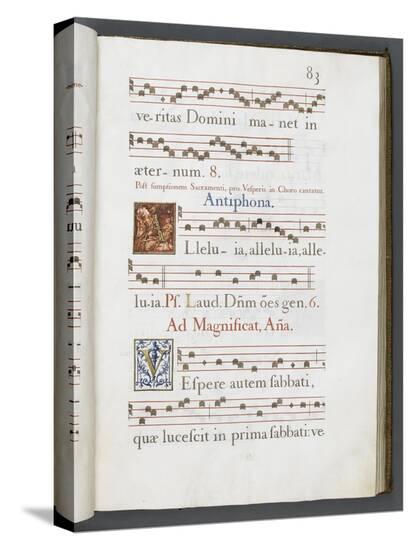 83
ve-ritas Domini ma-net in
æter-num. 8.
Post sumptionem Sacramenti, pro Vesperis in Choro cantatur.
Antiphona.
ALlelu-ia, allelu-ia, alle-
lu-ia. Pſ. Laud. Dñm óes gen. 6.
Ad Magnificat, Aña.
VEſpere autem ſabbati,
quæ luceſcit in prima ſabbati: ve-